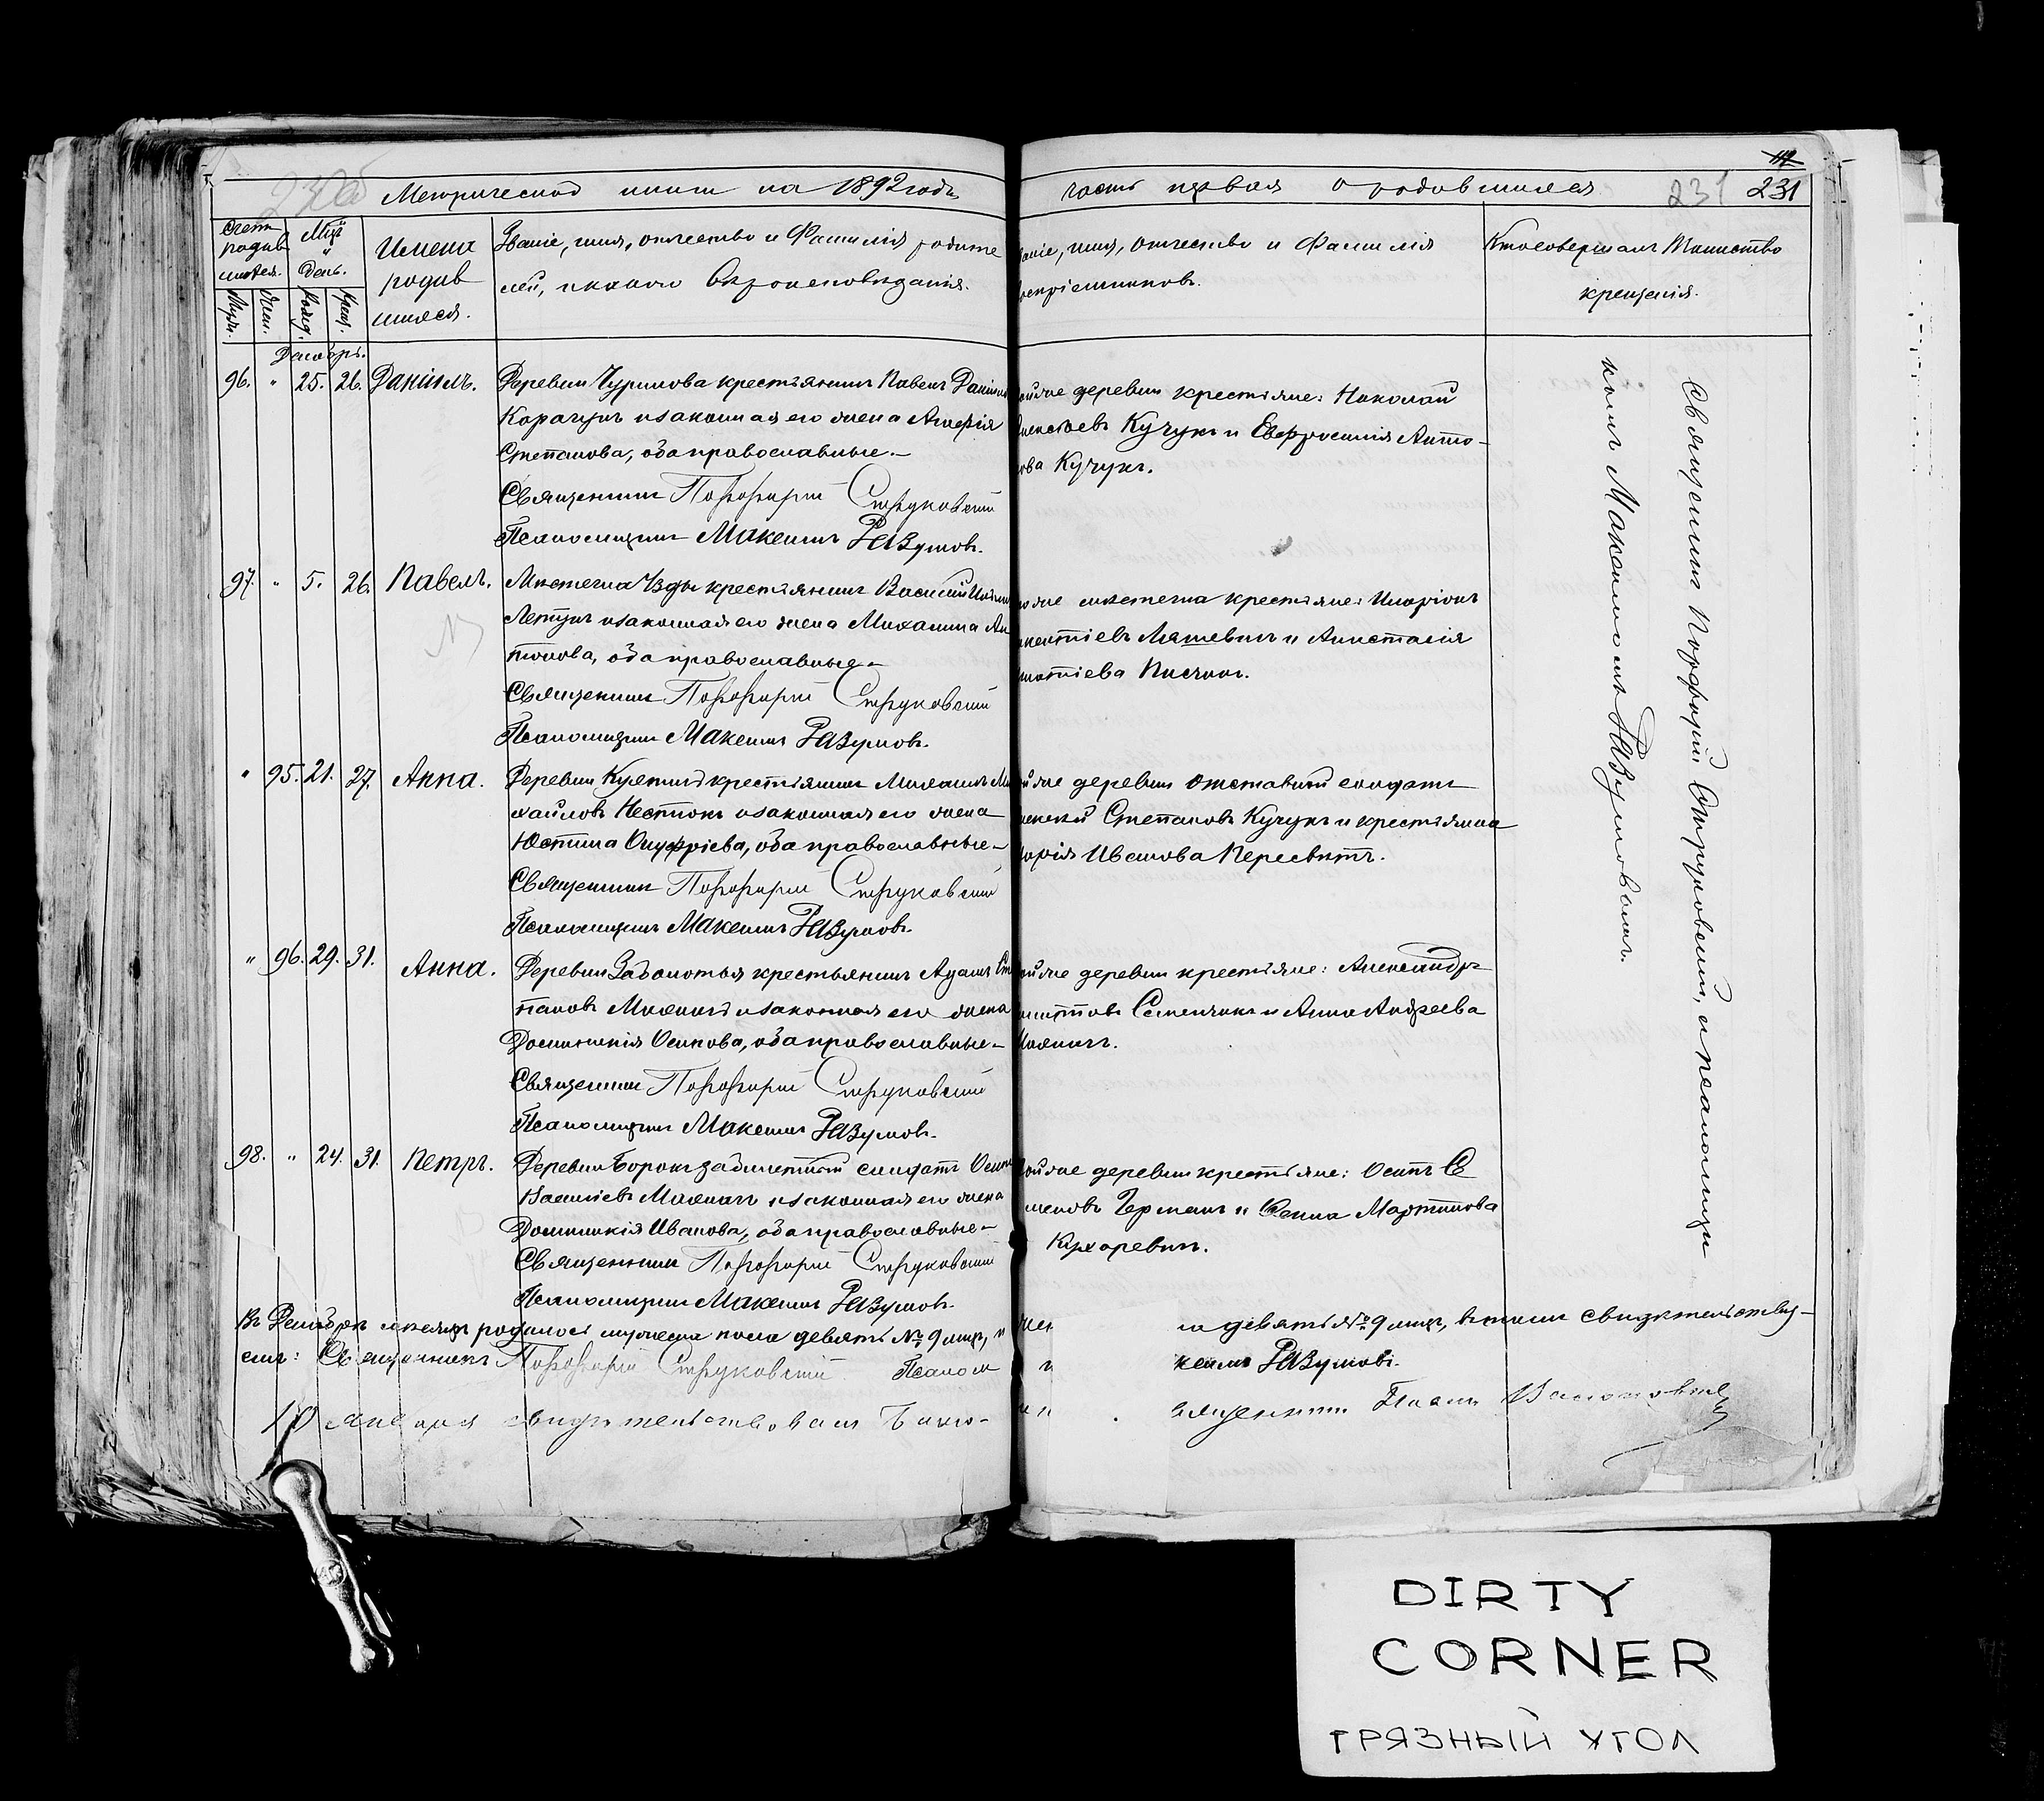 Метрической книги на 1892 годъ
часть первая о родившихся
231 231
Счетъ родив шихся.
Мцъ и день.
Имена родив шихся.
Званіе, имя, отчество и Фамилія родите
лей, и какого Вѣроисповѣданія.
аніе, имя, отчество и Фамилія
воспріемниковъ.
Кто совершалъ Таинство
крещенія.
Муж. Жен. Рожд. Крещ.
Декабрь.
96. " 25. 26. Даніилъ.
Деревни Чурилова крестьянинъ Павелъ Даніил
Карачунъ и законная его жена Агафія
Степанова, оба православные.—
Священникъ Порфирій Струковскій
Псаломщикъ Максимъ Разумовъ.
ой же деревни крестьяне: Николай
Алексѣевъ Кучукъ и Евфросинія Анто-
ова Кучукъ.
97. " 5. 26. Павелъ.
Мѣстечка Узды крестьянинъ Василій
Летунъ и законная его жена Михалина Ан
тонова, оба православные—
Священникъ Порфирій Струковскій
Псаломщикъ Максимъ Разумовъ.
же мѣстечка крестьяне: Иларіонъ
Ляшевичъ и Анастасія
Писчикъ.
" 95. 21. 27. Анна.
Деревни крестьянинъ Михаилъ Ми
хайловъ Нестюкъ и законная его жена
Юстина Онуфріева, оба православные—
Священникъ Порфирій Струковскій
Псаломщикъ Максимъ Разумовъ.
же деревни отставной солдатъ
Степановъ Кучукъ и крестьянка
арія Иванова Пересвѣтъ.
" 96. 29. 31. Анна.
Деревни Заболотья крестьянинъ Адамъ Сте
пановъ и законная его жена
Домникія Осипова, оба православные—
Священникъ Порфирій Струковскій
Псаломщикъ Максимъ Разумовъ.
ой же деревни крестьяне: Александръ
Семенчикъ и Анна Андреева
98. " 24. 31. Петръ.
Деревни Борокъ солдатъ Осипъ
Васильевъ и законная его жена
Домникія Иванова, оба православные—
Священникъ Порфирій Струковскій
Псаломщикъ Максимъ Разумовъ.
ой же деревни крестьяне: Осипъ Се
меновъ Германъ и Ѳекла Мартинова
Кухаревичъ.
Священникъ Порфирій Струковскій, и псаломщи
комъ Максимомъ Разумовымъ.
Въ Декабрѣ мѣсяцѣ родилось мужеска пола девять № 9 лицъ, и
жен
а девять № 9 лицъ, въ томъ свидѣтельству-
емъ: Священникъ Порфирій Струковскій Псалом
ксимъ Разумовъ.
10 января свидѣтельствовалъ Благо-
ященникъ
DIRTY
CORNER
ГРЯЗНЫЙ УГОЛ